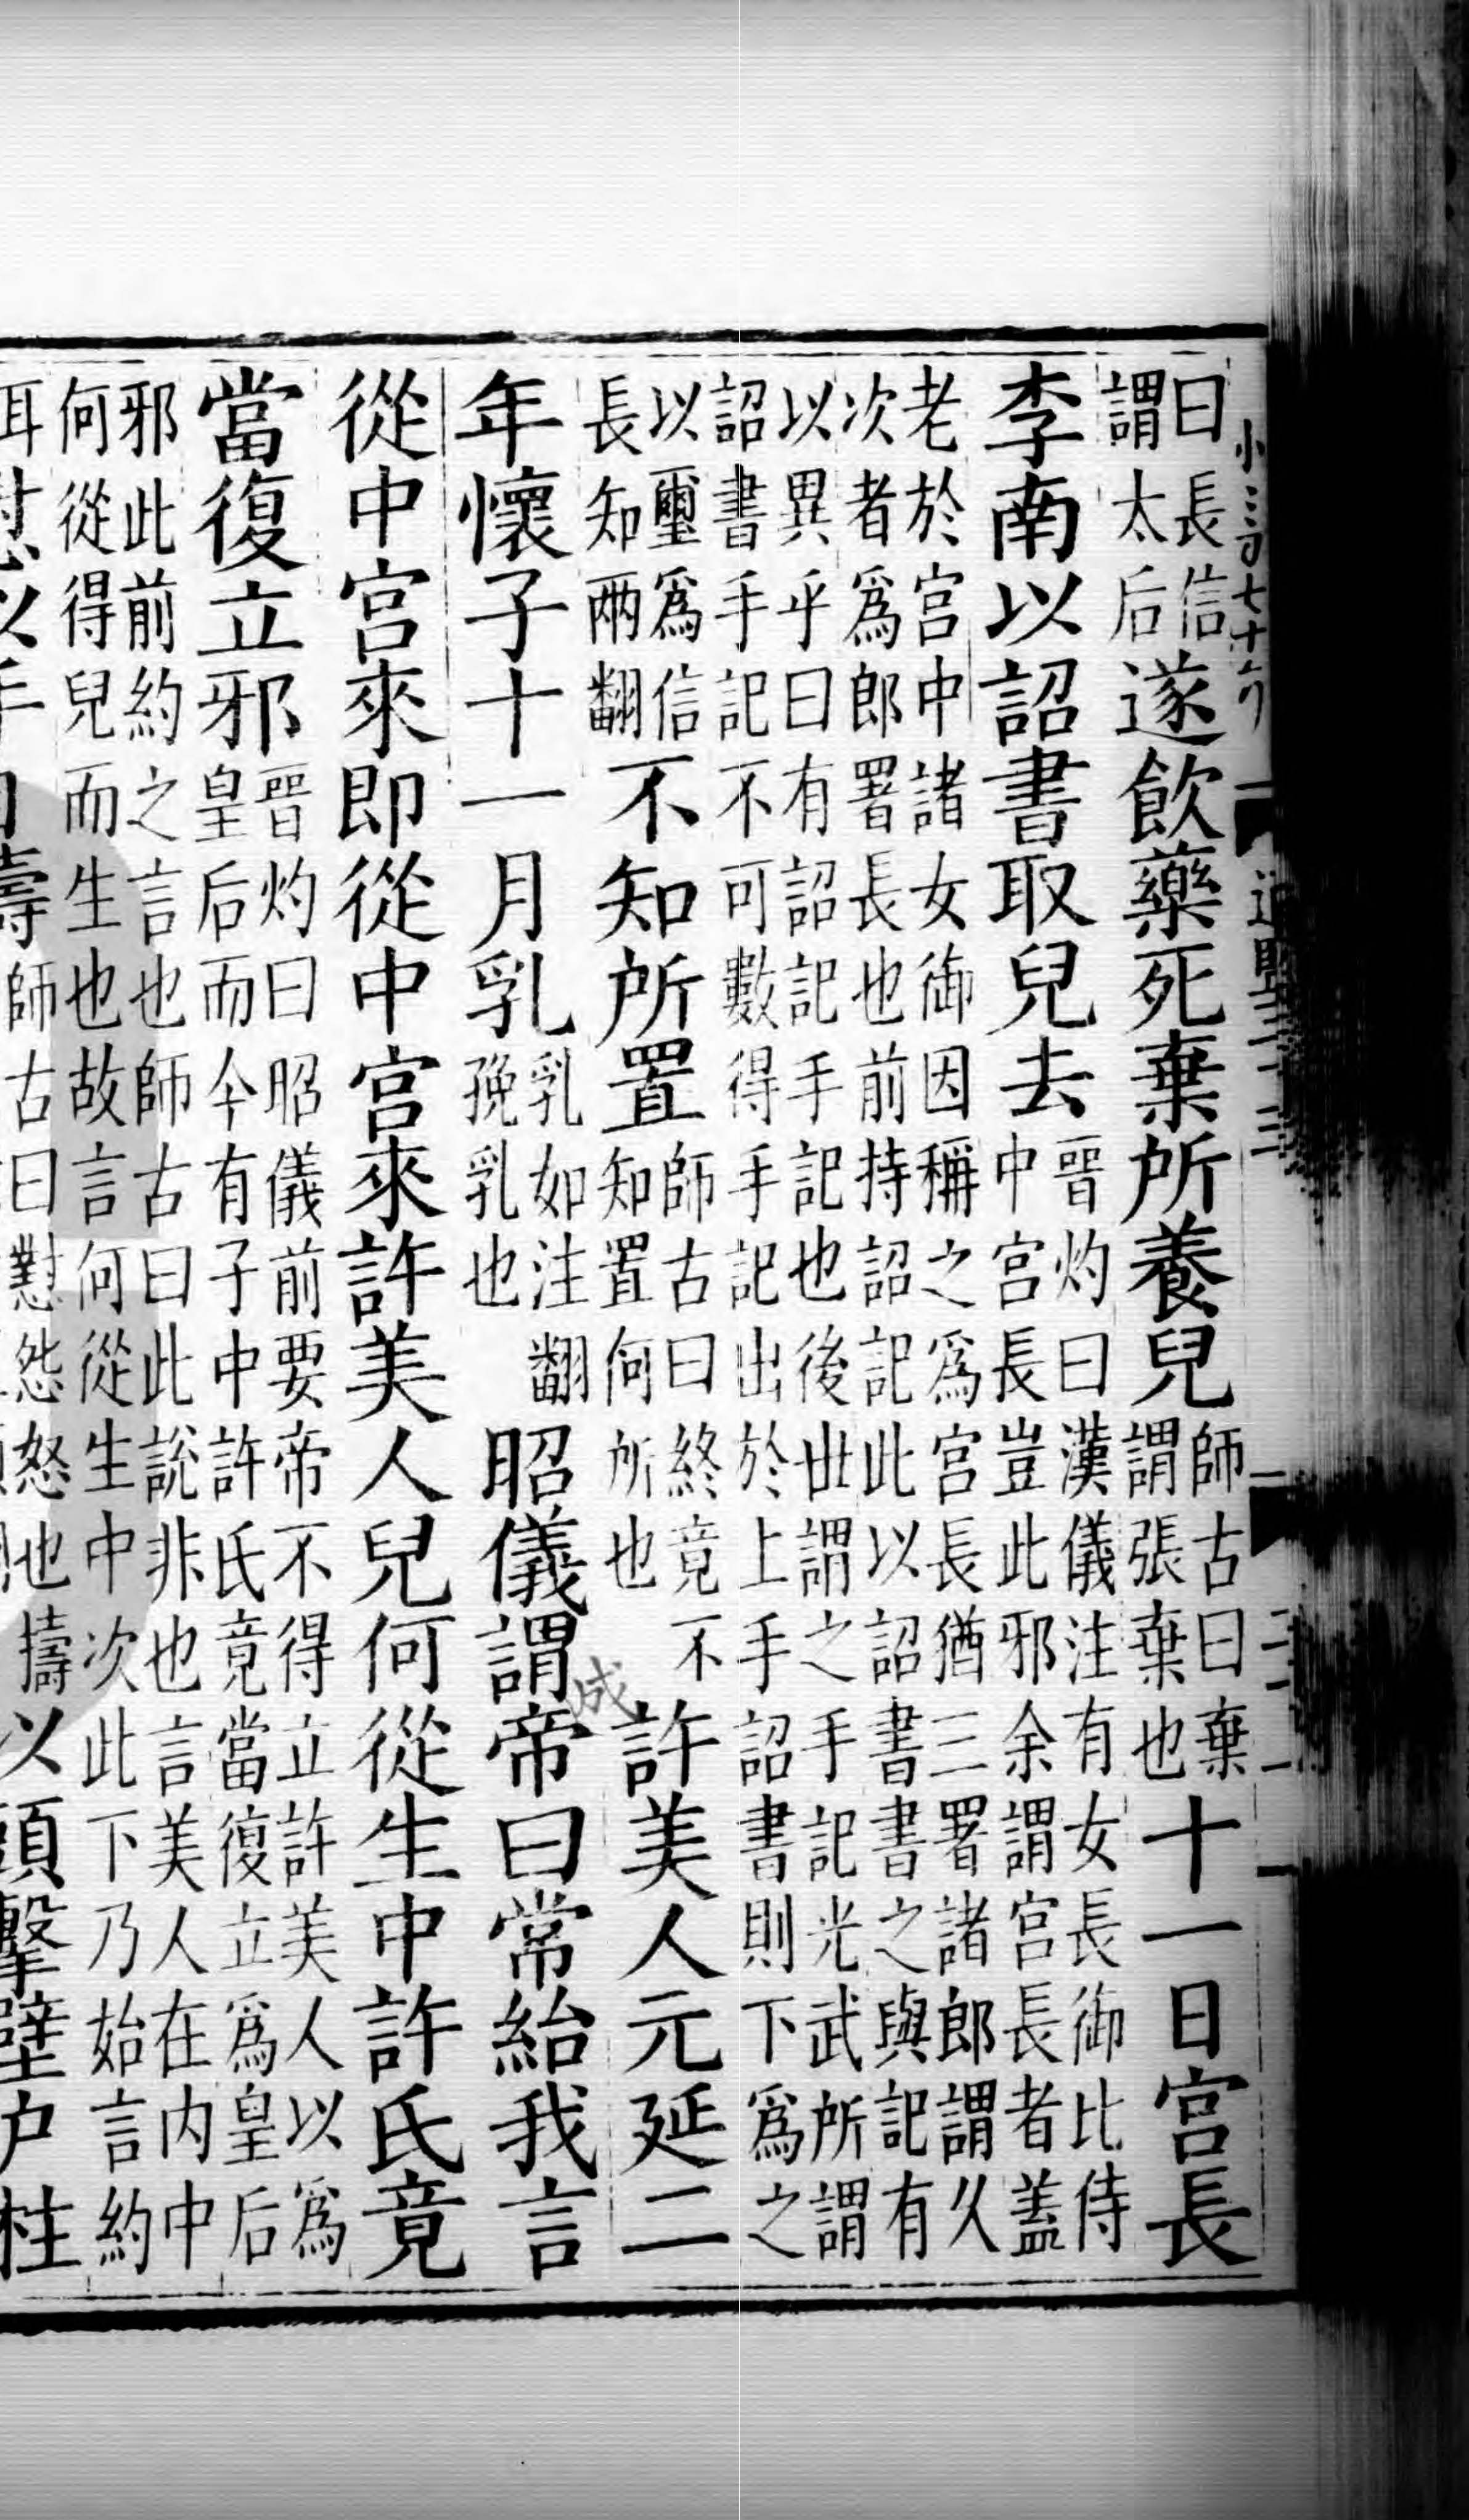 小三百七十六
曰長信謂太后遂飲藥死棄所養兒師古曰棄謂張棄也十一日宮長
李南以詔書取兒去晉灼曰漢儀注有女長御比侍中宮長豈此邪余謂宮長者蓋久
老於宮中諸女御因稱之爲宮長猶三署諸郎謂久次者爲郎署長也前持詔記此以詔書書之與記有
以異乎曰有詔記手記也後世謂之手記手記光武所謂詔書手記不可數得手記出於上手詔書則下爲之
以璽爲信長知兩翻不知所置師古曰終竟不知置何所也許美人元延二
年懷子十一月乳乳如注翻娩乳也昭儀謂帝曰常紿我言
從中宮來即從中宮來許美人兒何從生中許氏竟
當復立邪晉灼曰昭儀前要帝不得立許美人以爲皇后而今有子中許氏竟當復立爲皇后
邪此前約之言也師古曰此說非也言美人在内中何從得兒而生也故言何從生中次此下乃始言約
耳懟以手自擣師古曰懟怨怒也擣以頭擊壁戶柱